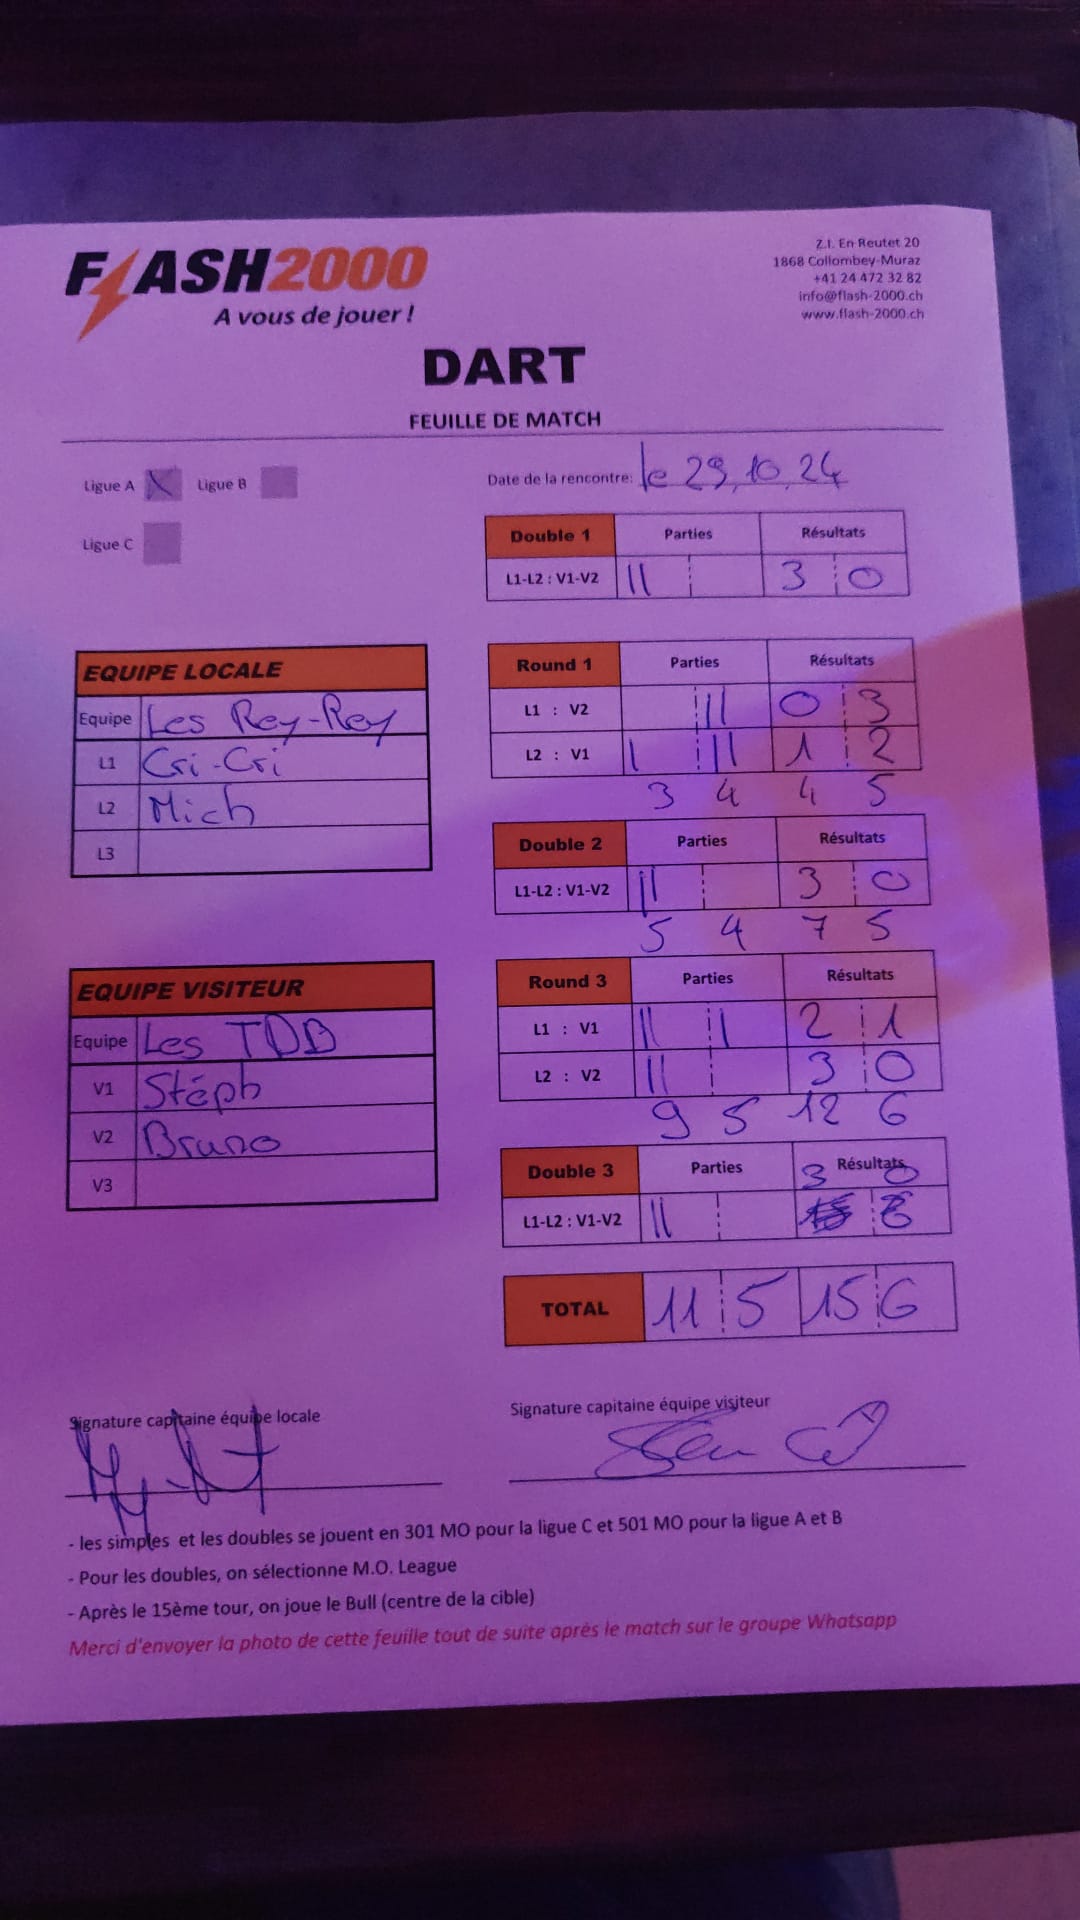 FLASH2000
A vous de jouer !
Z.I. En Reutet 20
1868 Collombey-Muraz
+41 24 472 32 82
info@flash-2000.ch
www.flash-2000.ch
DART
FEUILLE DE MATCH
Ligue A X Ligue B
Ligue C
Date de la rencontre: le 29.10.24
Double 1 Parties Résultats
L1-L2 : V1-V2 II 3 0
EQUIPE LOCALE
Equipe Les Rey-Rey
L1 Cri-Cri
L2 Mich
L3
Round 1 Parties Résultats
L1 : V2 II 0 3
L2 : V1 I II 1 2
3 4 4 5
Double 2 Parties Résultats
L1-L2 : V1-V2 II 3 0
5 4 7 5
EQUIPE VISITEUR
Equipe Les TDB
V1 Stéph
V2 Bruno
V3
Round 3 Parties Résultats
L1 : V1 II I 2 1
L2 : V2 II 3 0
9 5 12 6
Double 3 Parties Résultats
3 0
L1-L2 : V1-V2 II
TOTAL 11 5 15 6
Signature capitaine équipe locale
Signature capitaine équipe visiteur
- les simples et les doubles se jouent en 301 MO pour la ligue C et 501 MO pour la ligue A et B
- Pour les doubles, on sélectionne M.O. League
- Après le 15ème tour, on joue le Bull (centre de la cible)
Merci d'envoyer la photo de cette feuille tout de suite après le match sur le groupe Whatsapp